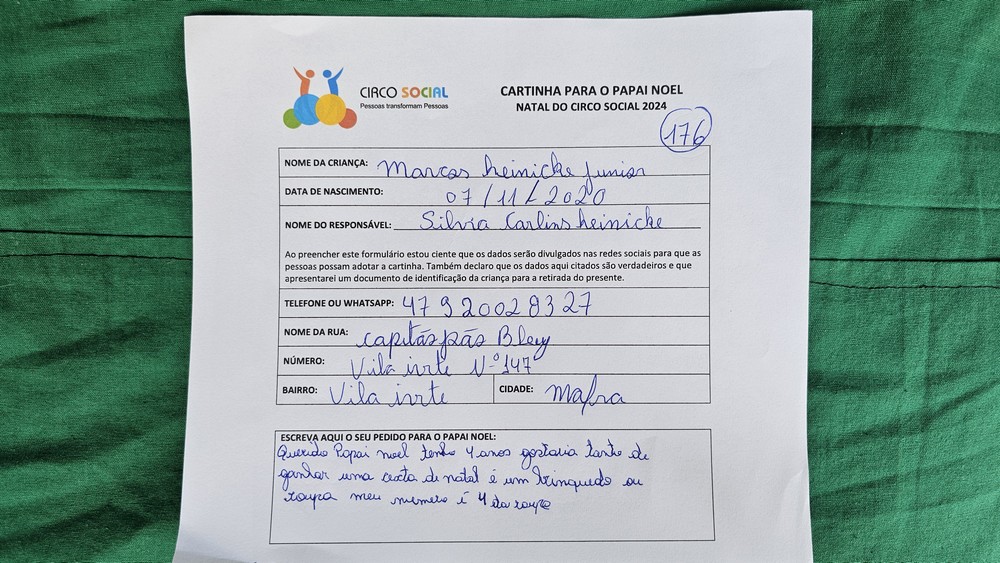 CIRCO SOCIAL
Pessoas transformam Pessoas
CARTINHA PARA O PAPAI NOEL
NATAL DO CIRCO SOCIAL 2024
176
NOME DA CRIANÇA: Marcos heinicke junior
DATA DE NASCIMENTO: 07/11/2020
NOME DO RESPONSÁVEL: Silvia Carlins heinicke
Ao preencher este formulário estou ciente que os dados serão divulgados nas redes sociais para que as
pessoas possam adotar a cartinha. Também declaro que os dados aqui citados são verdadeiros e que
apresentarei um documento de identificação da criança para a retirada do presente.
TELEFONE OU WHATSAPP: 47 920028327
NOME DA RUA: capitás pás Bley
NÚMERO: Vila ivrte Nº 147
BAIRRO: Vila ivrte
CIDADE: Mafra
ESCREVA AQUI O SEU PEDIDO PARA O PAPAI NOEL:
Querido Papai noel tenho 4 anos gostaria tanto de
ganhar uma cesta de natal é um brinquedo ou
roupa meu numero é 4 da roupa